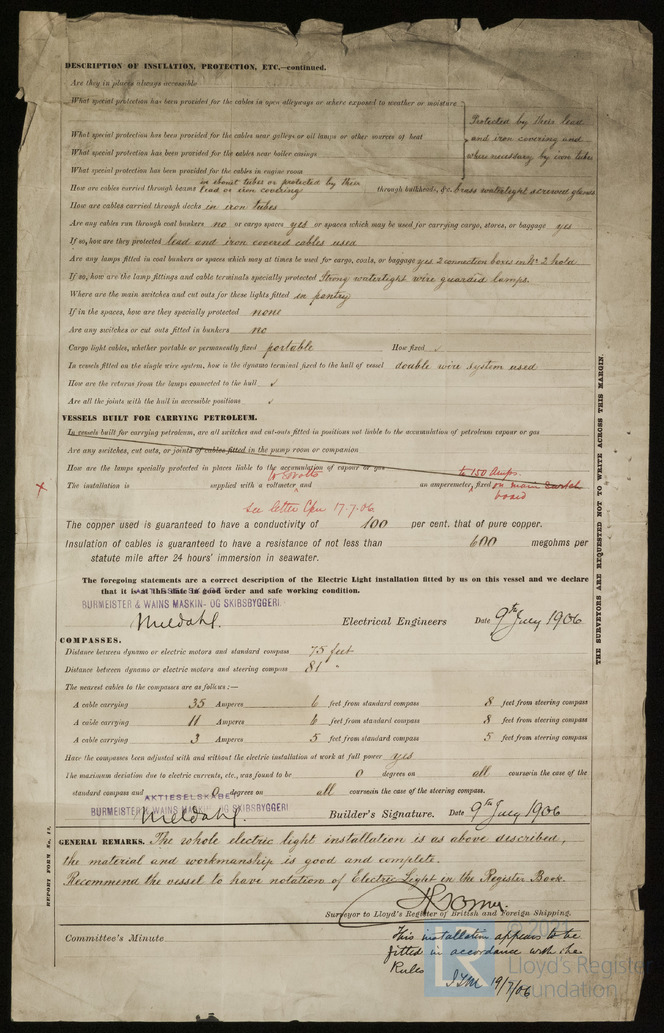 DESCRIPTION OF INSULATION, PROTECTION, ETC.—continued.
Are they in places always accessible
What special protection has been provided for the cables in open alleyways or where exposed to weather or moisture
Protected by their lead
What special protection has been provided for the cables near galleys or oil lamps or other sources of heat
and iron covering and
What special protection has been provided for the cables near boiler casings
where necessary by iron tubes
What special protection has been provided for the cables in engine room
How are cables carried through beams in ebonit tubes or protected by their lead or iron covering through bulkheads, &c. brass watertight screwed glands
How are cables carried through decks in iron tubes
Are any cables run through coal bunkers no or cargo spaces yes or spaces which may be used for carrying cargo, stores, or baggage yes
If so, how are they protected lead and iron covered cables used
Are any lamps fitted in coal bunkers or spaces which may at times be used for cargo, coals, or baggage yes 2 connection boxes in No 2 hold
If so, how are the lamp fittings and cable terminals specially protected Strong watertight wire guarded lamps.
Where are the main switches and cut outs for these lights fitted in pantry
If in the spaces, how are they specially protected none
Are any switches or cut outs fitted in bunkers no
Cargo light cables, whether portable or permanently fixed portable How fixed ✓
In vessels fitted on the single wire system, how is the dynamo terminal fixed to the hull of vessel double wire system used
How are the returns from the lamps connected to the hull ✓
Are all the joints with the hull in accessible positions ✓
VESSELS BUILT FOR CARRYING PETROLEUM.
In vessels built for carrying petroleum, are all switches and cut-outs fitted in positions not liable to the accumulation of petroleum vapour or gas
Are any switches, cut outs, or joints of cables fitted in the pump room or companion
How are the lamps specially protected in places liable to the accumulation of vapour or gas
to 150 Amps.
The installation is supplied with a voltmeter and an amperemeter, fixed on main switch board
see letter Cpn 17-7-06
The copper used is guaranteed to have a conductivity of 100 per cent. that of pure copper.
Insulation of cables is guaranteed to have a resistance of not less than 600 megohms per
statute mile after 24 hours' immersion in seawater.
The foregoing statements are a correct description of the Electric Light installation fitted by us on this vessel and we declare
that it is at this date in good order and safe working condition.
AKTIESELSKABET
BURMEISTER & WAINS MASKIN- OG SKIBSBYGGERI.
Meldahl. Electrical Engineers Date 9th July 1906
COMPASSES.
Distance between dynamo or electric motors and standard compass 75 feet
Distance between dynamo or electric motors and steering compass 81 "
The nearest cables to the compasses are as follows:—
A cable carrying 35 Amperes 6 feet from standard compass 8 feet from steering compass
A cable carrying 11 Amperes 6 feet from standard compass 8 feet from steering compass
A cable carrying 3 Amperes 5 feet from standard compass 5 feet from steering compass
Have the compasses been adjusted with and without the electric installation at work at full power yes
The maximum deviation due to electric currents, etc., was found to be 0 degrees on all course in the case of the
standard compass and 0 degrees on all course in the case of the steering compass.
AKTIESELSKABET
BURMEISTER & WAINS MASKIN- OG SKIBSBYGGERI
Meldahl. Builder's Signature. Date 9th July 1906
GENERAL REMARKS. The whole electric light installation is as above described,
the material and workmanship is good and complete.
Recommend the vessel to have notation of Electric Light in the Register Book.
Surveyor to Lloyd's Register of British and Foreign Shipping.
Committee's Minute
This installation appears to be
fitted in accordance with the
Rules
19/7/06
THE SURVEYORS ARE REQUESTED NOT TO WRITE ACROSS THIS MARGIN.
REPORT FORM No. 11.
Lloyd's Register
Foundation